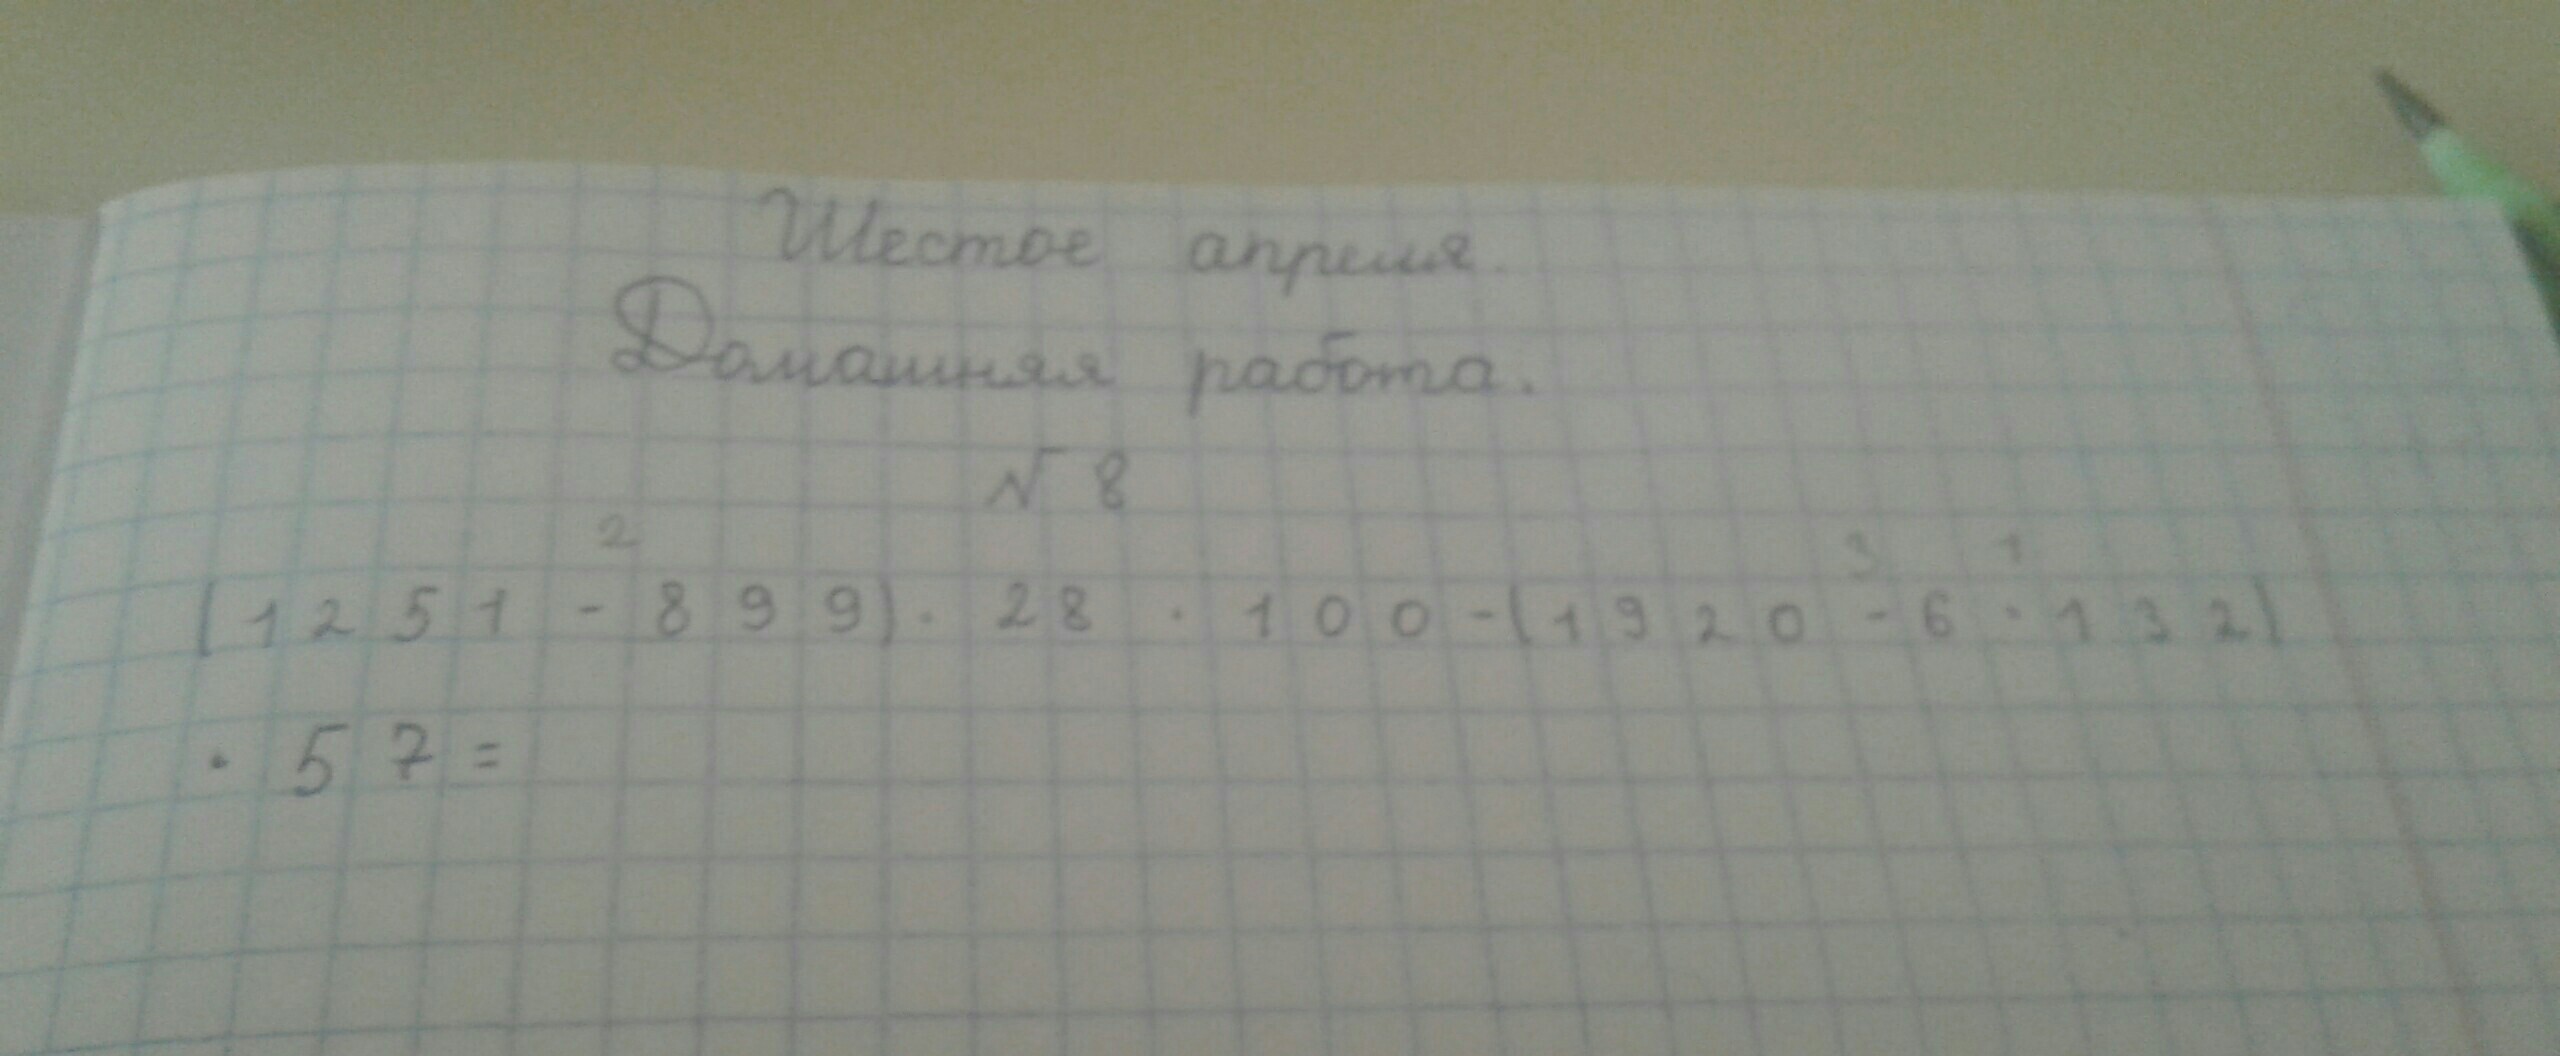 Шестое апреля.
Домашняя работа.
№ 8
2 3 1
(1251 - 899) · 28 · 100 - (1920 - 6 · 132)
· 57 =